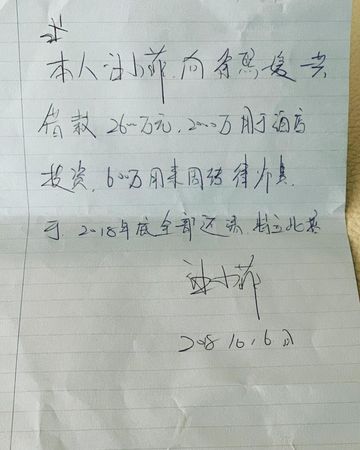 本人汪小菲,向
借款2600万元,2000万用于酒店
投资,600万用来周转
于2018年底全部还清,特立此据
汪小菲
2018.10.6日